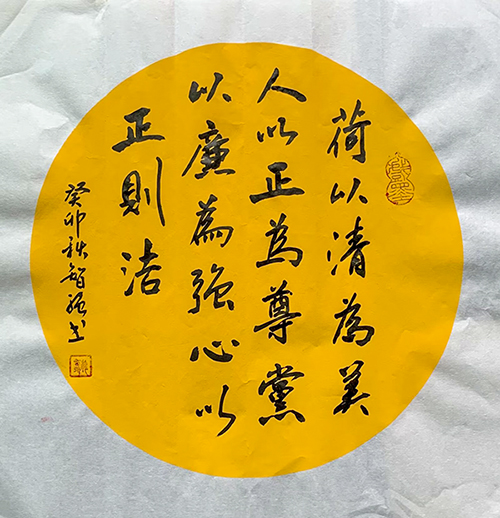 荷以清為美
人以正為尊黨
以廉為強心以
正則洁
癸卯秋智强书